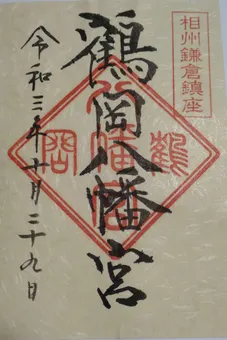 相州鎌倉鎮座
鶴岡八幡宮
八幡宮
鶴
岡
令和三年十月二十九日